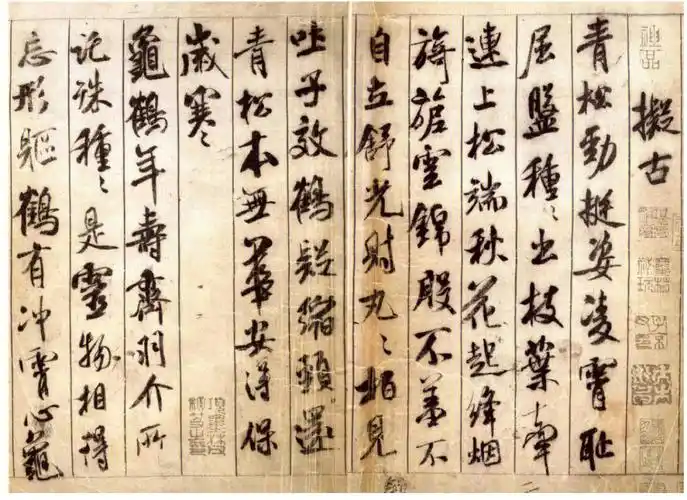 神品
擬古
青松勁挺姿凌霄恥
屈盤種〻出枝葉牽
連上松端秋花起絳烟
旖旎雲錦殷不羞不
自立舒光射丸〻柏見
吐子效鶴疑縮頸還
青松本無華安得保
歲寒
龜鶴年壽齊羽介所
託殊種〻是靈物相得
忘形軀鶴有冲霄心龜